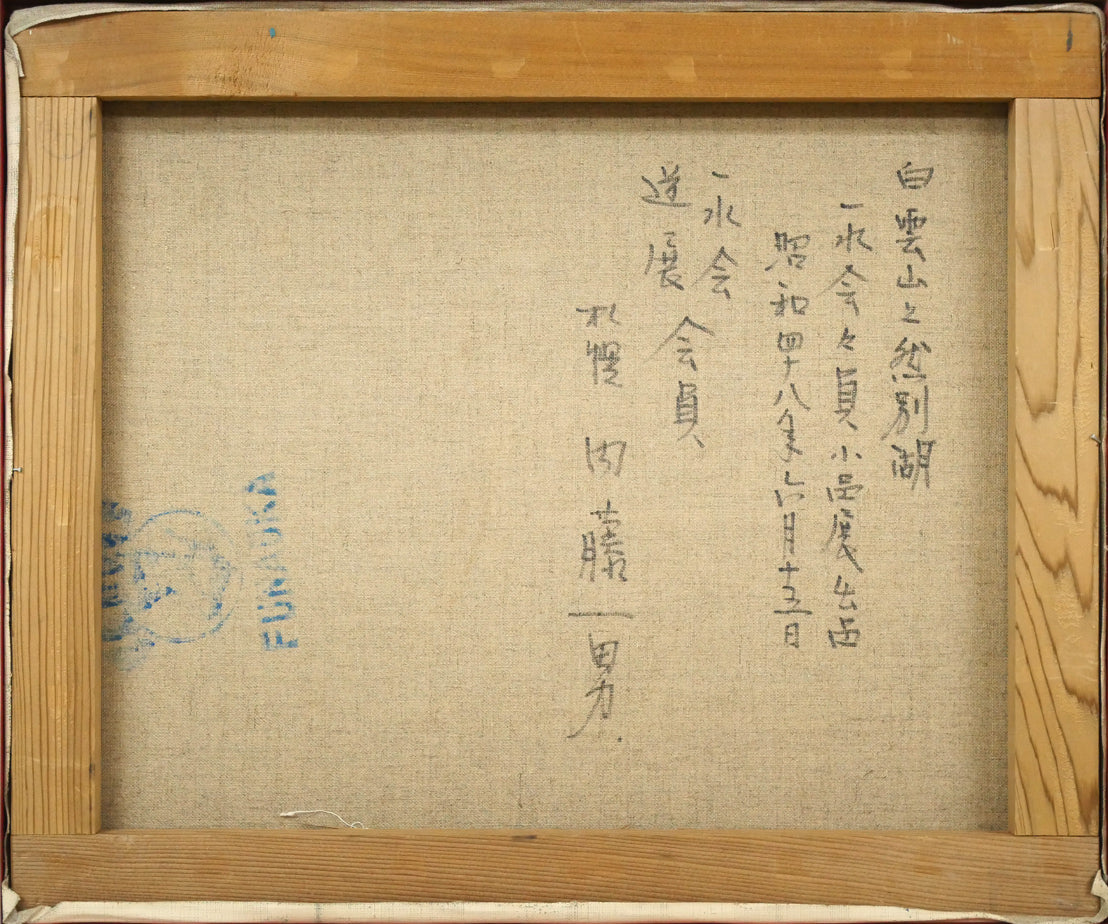 白雲山と然別湖
一水会々員小品展出品
昭和四十八年六月十三日
一水会 会員
道展
札幌 内藤一男
FUNAOKA